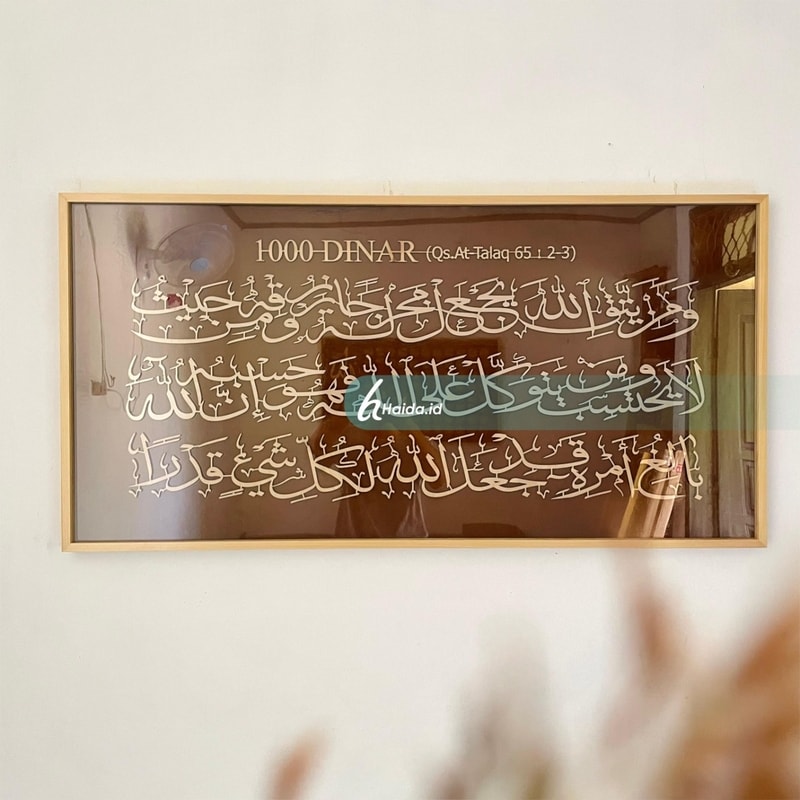 1000 DINAR (Qs.At-Talaq 65 : 2-3)
وَمَنْ يَتَّقِ اللّٰهَ يَجْعَلْ لَهُ مَخْرَجًا وَيَرْزُقْهُ مِنْ حَيْثُ
لَا يَحْتَسِبُ وَمَنْ يَتَوَكَّلْ عَلَى اللّٰهِ فَهُوَ حَسْبُهُ إِنَّ اللّٰهَ
بَالِغُ أَمْرِهِ قَدْ جَعَلَ اللّٰهُ لِكُلِّ شَيْءٍ قَدْرًا
Haida.id